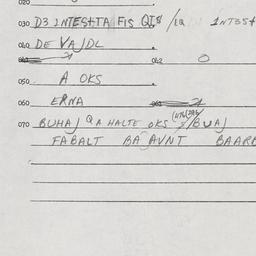 020
030 D3 INTESTTA FIS QIS / IQ INT35T
040 DE VAJDL
042 O
050 A OKS
060 ERNA
070 BUHAJ Q A HALTE OKS / BUAJ
FABALT BAJAVNT BAARE